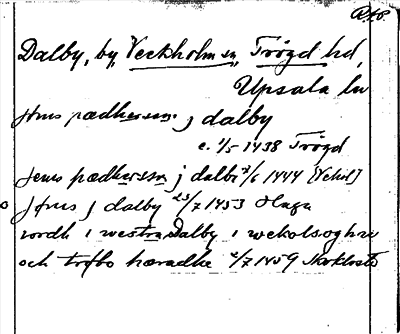 Dalby, by, Veckholm sn, Trögd hd,
Upsala ln
Jens pædhersson j dalby
c. 1/5 1438 Trögd
Jenis pædhersson j dalbi 2/6 1444
Jønis j dalby 23/7 1453 Haga
nordh i westra Dalby i wekolsoghn
och trøfbo hæradhe 2/7 1459